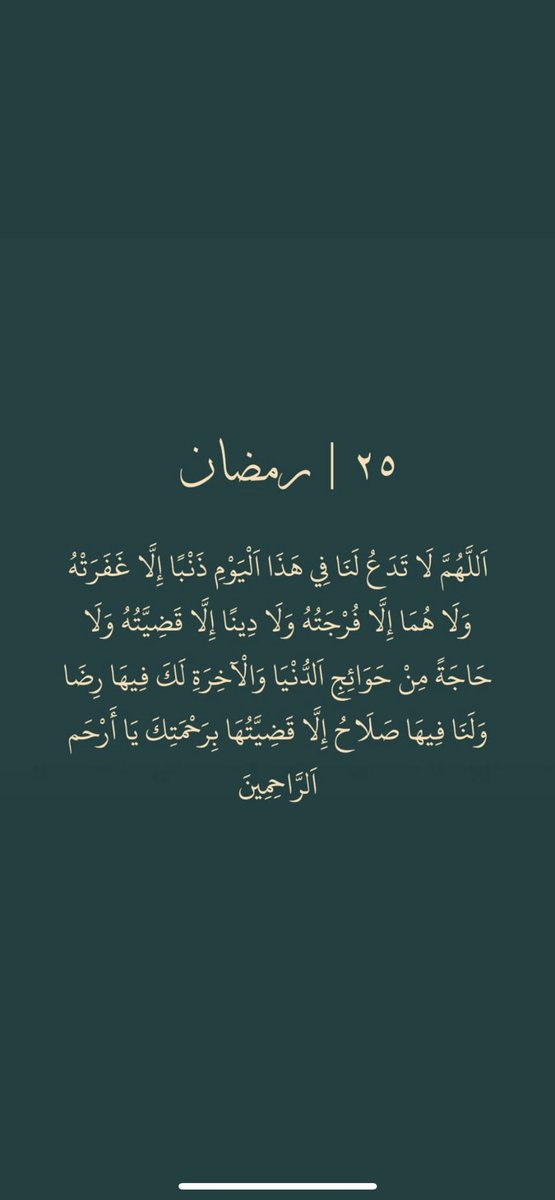 ٢٥ | رمضان
اَللَّهُمَّ لَا تَدَعُ لَنَا فِي هَذَا اَلْيَوْمِ ذَنْبًا إِلَّا غَفَرَتْهُ
وَلَا هُمَا إِلَّا فُرْجَتُهُ وَلَا دِينًا إِلَّا قَضِيَّتُهُ وَلَا
حَاجَةً مِنْ حَوَائِجِ اَلدُّنْيَا وَالْآخِرَةِ لَكَ فِيهَا رِضَا
وَلَنَا فِيهَا صَلَاحُ إِلَّا قَضِيَّتُهَا بِرَحْمَتِكَ يَا أَرْحَم
اَلرَّاحِمِينَ